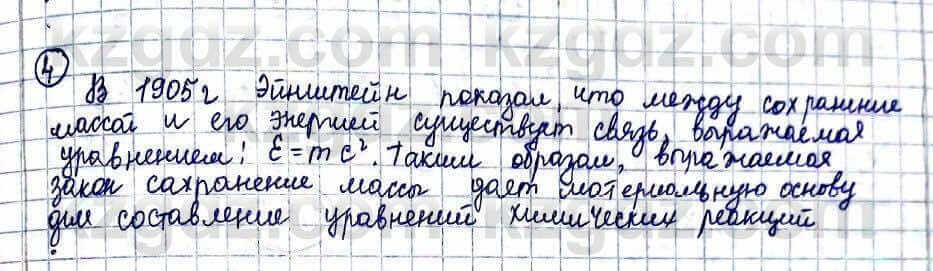 kzgdz.com kzgdz.com
④
В 1905г Эйнштейн показал, что между сохранение
массой и его энергией существует связь, выражаемая
уравнением: E = mc². Таким образом, выражаемая
закон сахранение массы дает материальную основу
для составление уравнений химических реакций